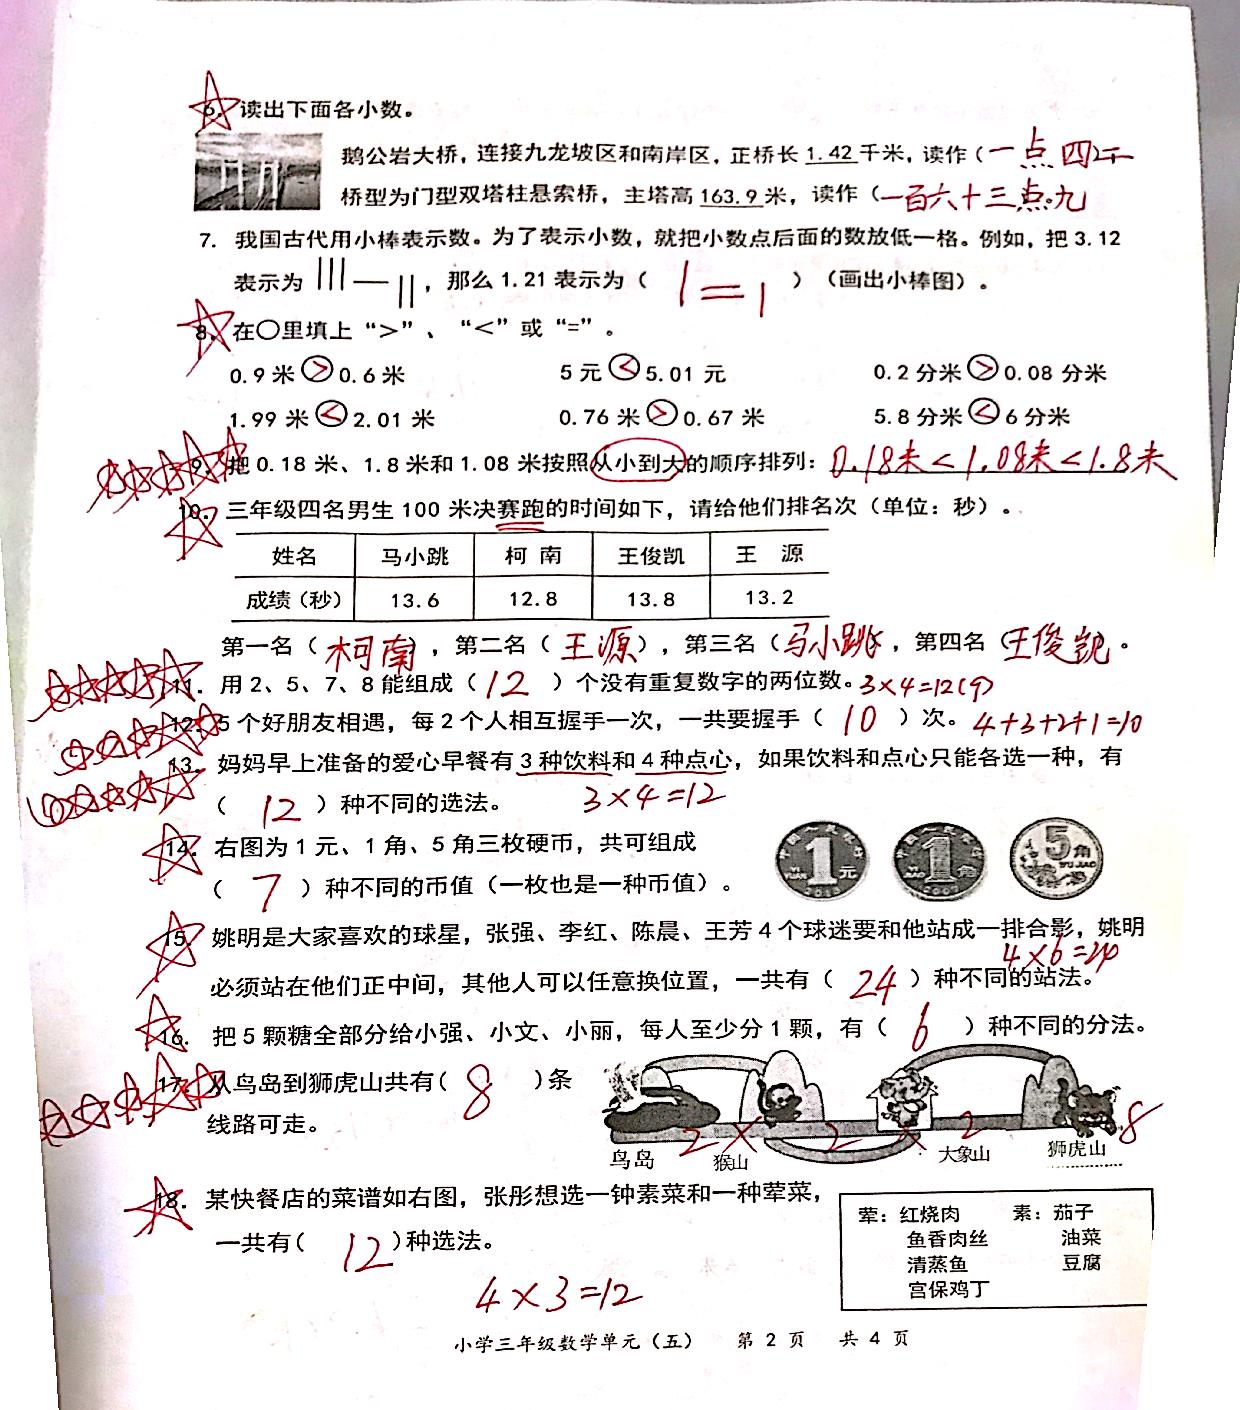 6. 读出下面各小数。
鹅公岩大桥，连接九龙坡区和南岸区，正桥长 1.42 千米，读作（一点四二
桥型为门型双塔柱悬索桥，主塔高 163.9 米，读作（一百六十三点九
7. 我国古代用小棒表示数。为了表示小数，就把小数点后面的数放低一格。例如，把 3.12
表示为 |||—||，那么 1.21 表示为（ |=| ）（画出小棒图）。
8. 在○里填上“>”、“<”或“=”。
0.9 米 > 0.6 米 5 元 < 5.01 元 0.2 分米 > 0.08 分米
1.99 米 < 2.01 米 0.76 米 > 0.67 米 5.8 分米 < 6 分米
9. 把 0.18 米、1.8 米和 1.08 米按照从小到大的顺序排列：0.18米<1.08米<1.8米
10. 三年级四名男生 100 米决赛跑的时间如下，请给他们排名次（单位：秒）。
姓名 马小跳 柯 南 王俊凯 王 源
成绩（秒） 13.6 12.8 13.8 13.2
第一名（柯南），第二名（王源），第三名（马小跳，第四名（王俊凯。
11. 用 2、5、7、8 能组成（12）个没有重复数字的两位数。3×4=12(个)
12. 5 个好朋友相遇，每 2 个人相互握手一次，一共要握手（10）次。4+3+2+1=10
13. 妈妈早上准备的爱心早餐有 3 种饮料和 4 种点心，如果饮料和点心只能各选一种，有
（12）种不同的选法。 3×4=12
14. 右图为 1 元、1 角、5 角三枚硬币，共可组成
（7）种不同的币值（一枚也是一种币值）。
1 元
1 角
5 角
WU JIAO
15. 姚明是大家喜欢的球星，张强、李红、陈晨、王芳 4 个球迷要和他站成一排合影，姚明
4×6=24
必须站在他们正中间，其他人可以任意换位置，一共有（24）种不同的站法。
16. 把 5 颗糖全部分给小强、小文、小丽，每人至少分 1 颗，有（6）种不同的分法。
17. 从鸟岛到狮虎山共有(8)条
线路可走。
2 × 2 × 2 8
鸟岛 猴山 大象山 狮虎山
18. 某快餐店的菜谱如右图，张彤想选一钟素菜和一种荤菜，
一共有(12)种选法。
4×3=12
荤：红烧肉 素：茄子
鱼香肉丝 油菜
清蒸鱼 豆腐
宫保鸡丁
小学三年级数学单元（五） 第 2 页 共 4 页